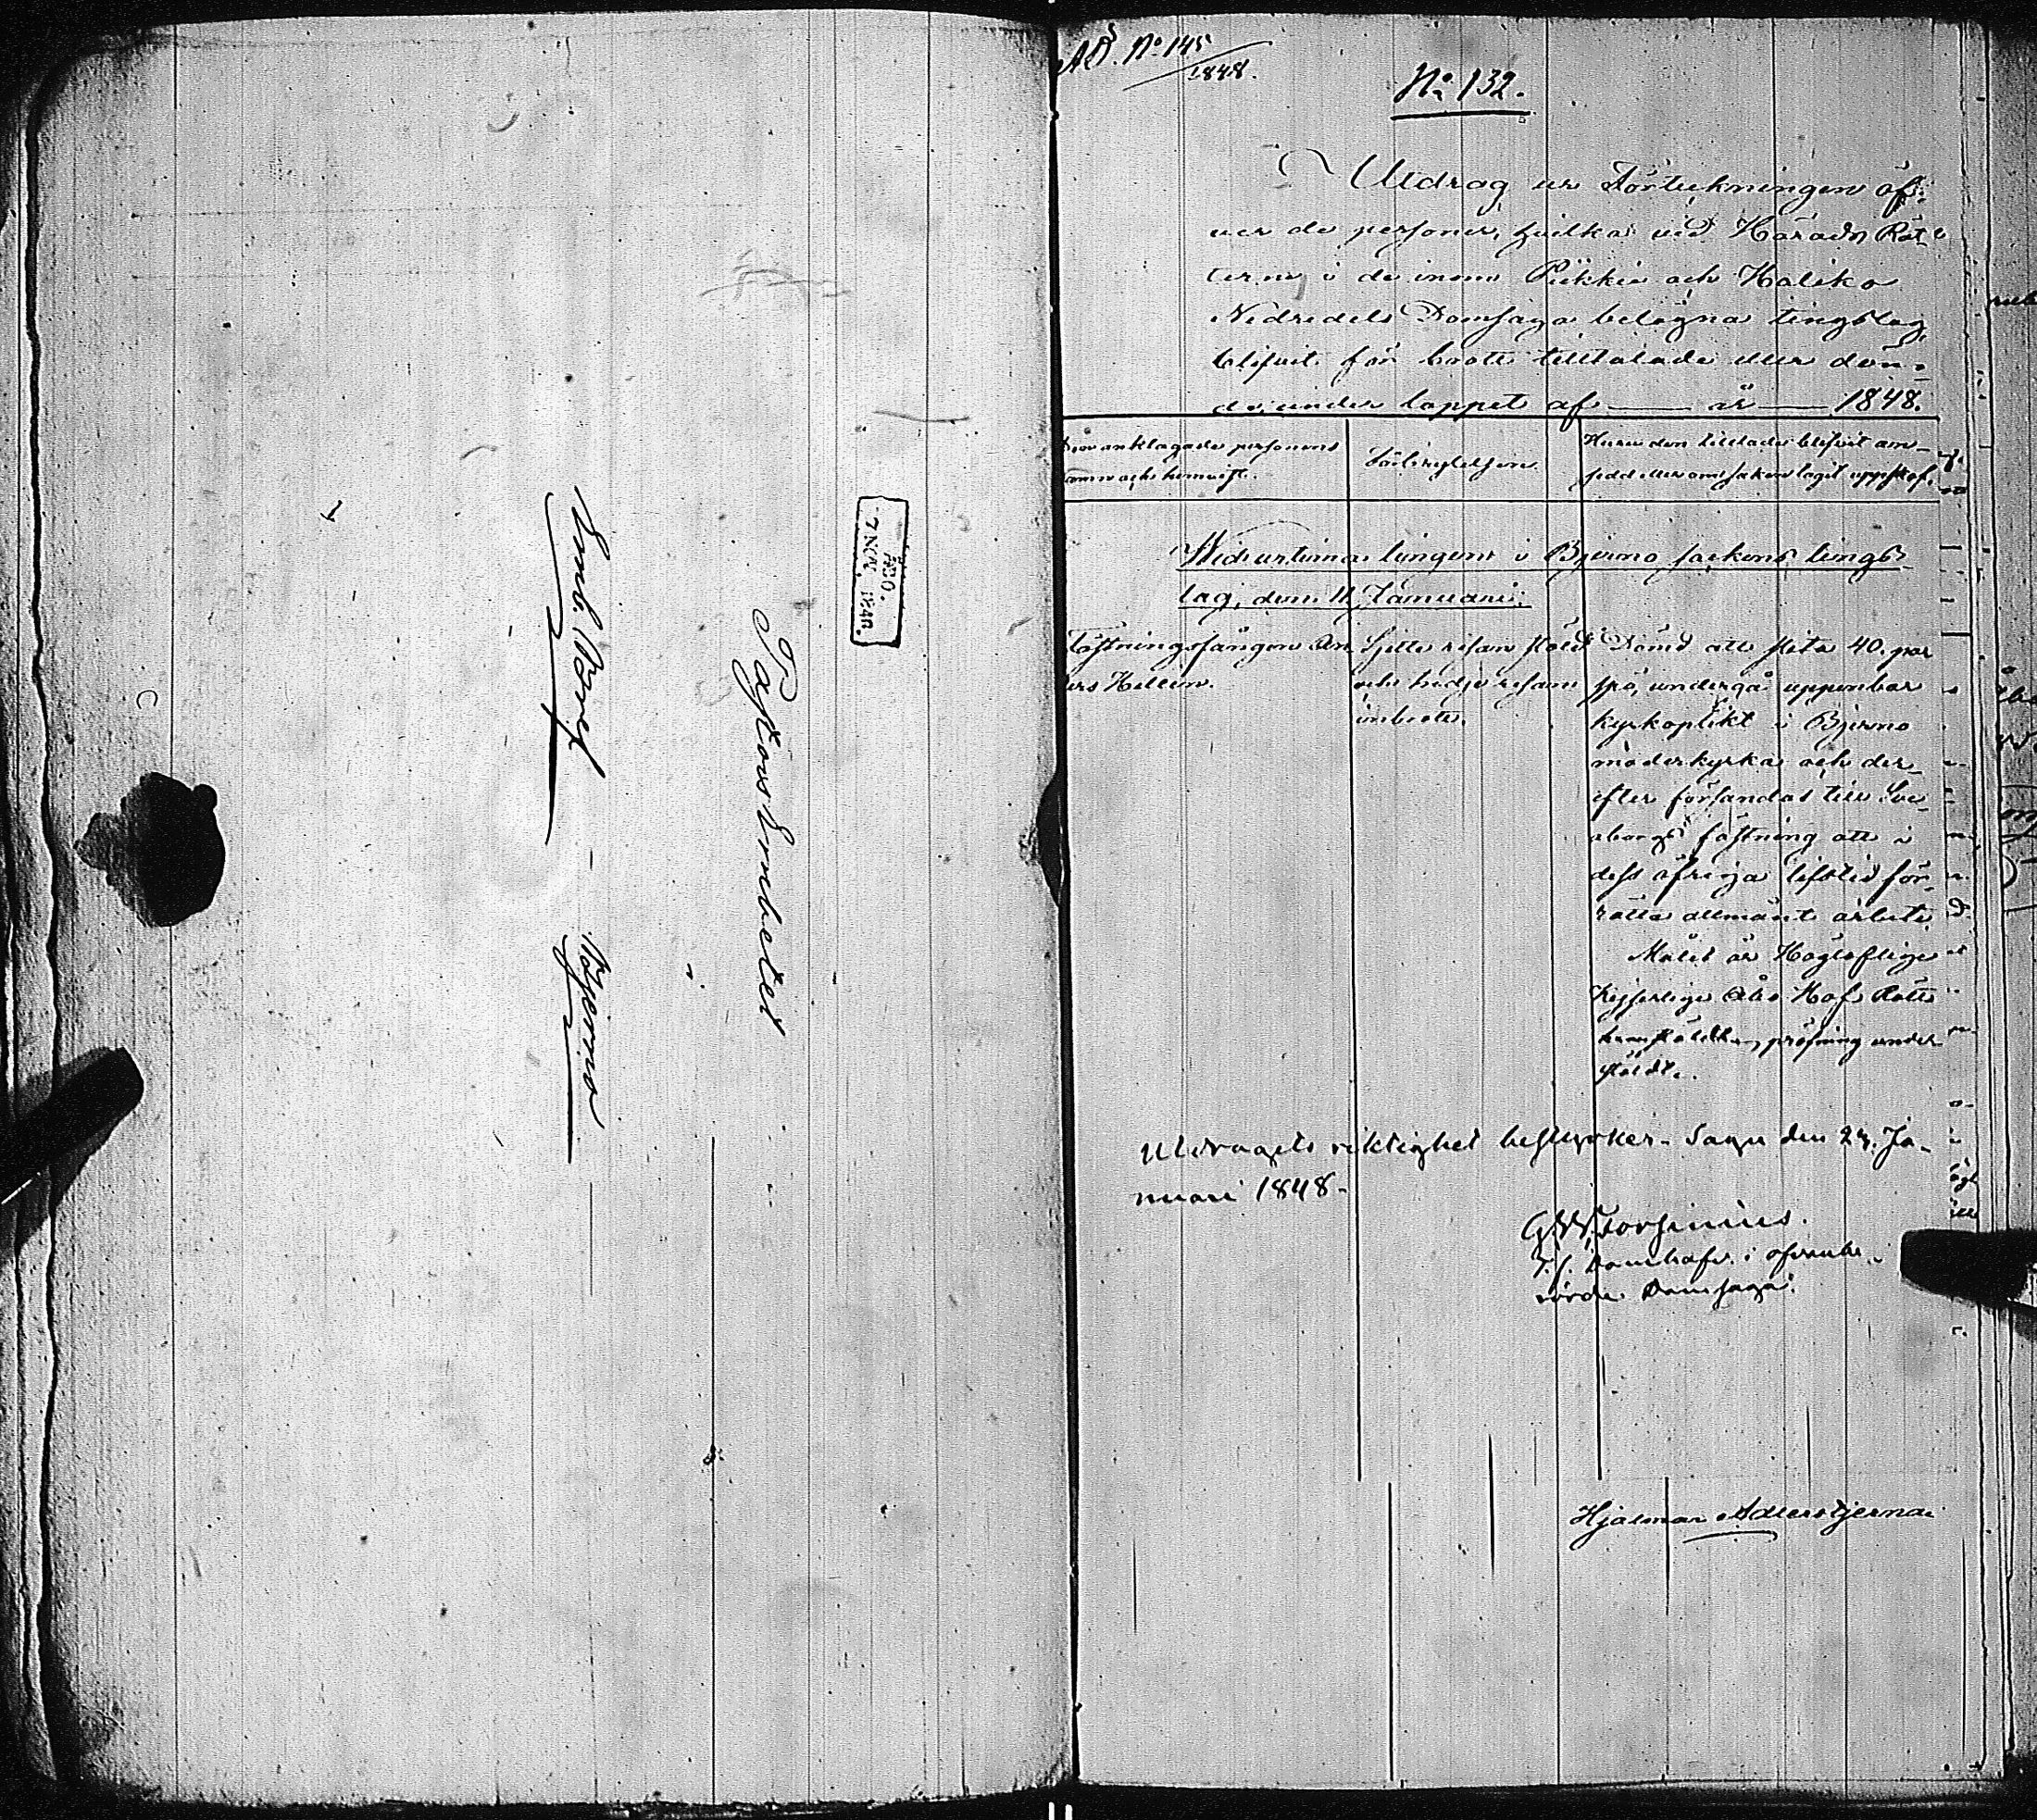 Emb. Bref – Bjerno
Pastors Embetet
ÅBO.
7 NOV. 1848.
AD. No. 145
1848.
No 132.
Utdrag ur Förteckningen öf-
ver de personer, hvilka vid Härads Rät-
terne i de inom Piikkie och Haliko
Nedredels Domsaga belägna tingslag
blifvit för brott tilltalade eller döm-
de, under loppet af — år — 1848.
Den anklagade personens
namn och hemvist.
Förbrytelsen.
Huru den tilltalade blifvit an-
sedd eller om saken tagit uppskof.
Wid urtima tingen i Bjerno sockens tings-
lag, den 11 Januari.
Fästningsfången An-
ders Hellen.
Sjette resan stöld
och tredje resan
inbrott.
Dömd att slita 40. par
spö, undergå uppenbar
kyrkoplikt i Bjerno
moderkyrka och der-
efter försändas till Sve-
aborgs fästning att i
dess öfriga lifstid för-
rätta allmänt arbete.
Målet är Högloflige
Kejserlige Åbo Hof Rätts
pröfning under-
stäldt.
Utdragets riktighet bestyrker. Sagu den 27. Ja-
nuari 1848.
T. f. Domhafv. i ofvanbe-
rörde Domsaga.
Hjalmar Adlerstjerna